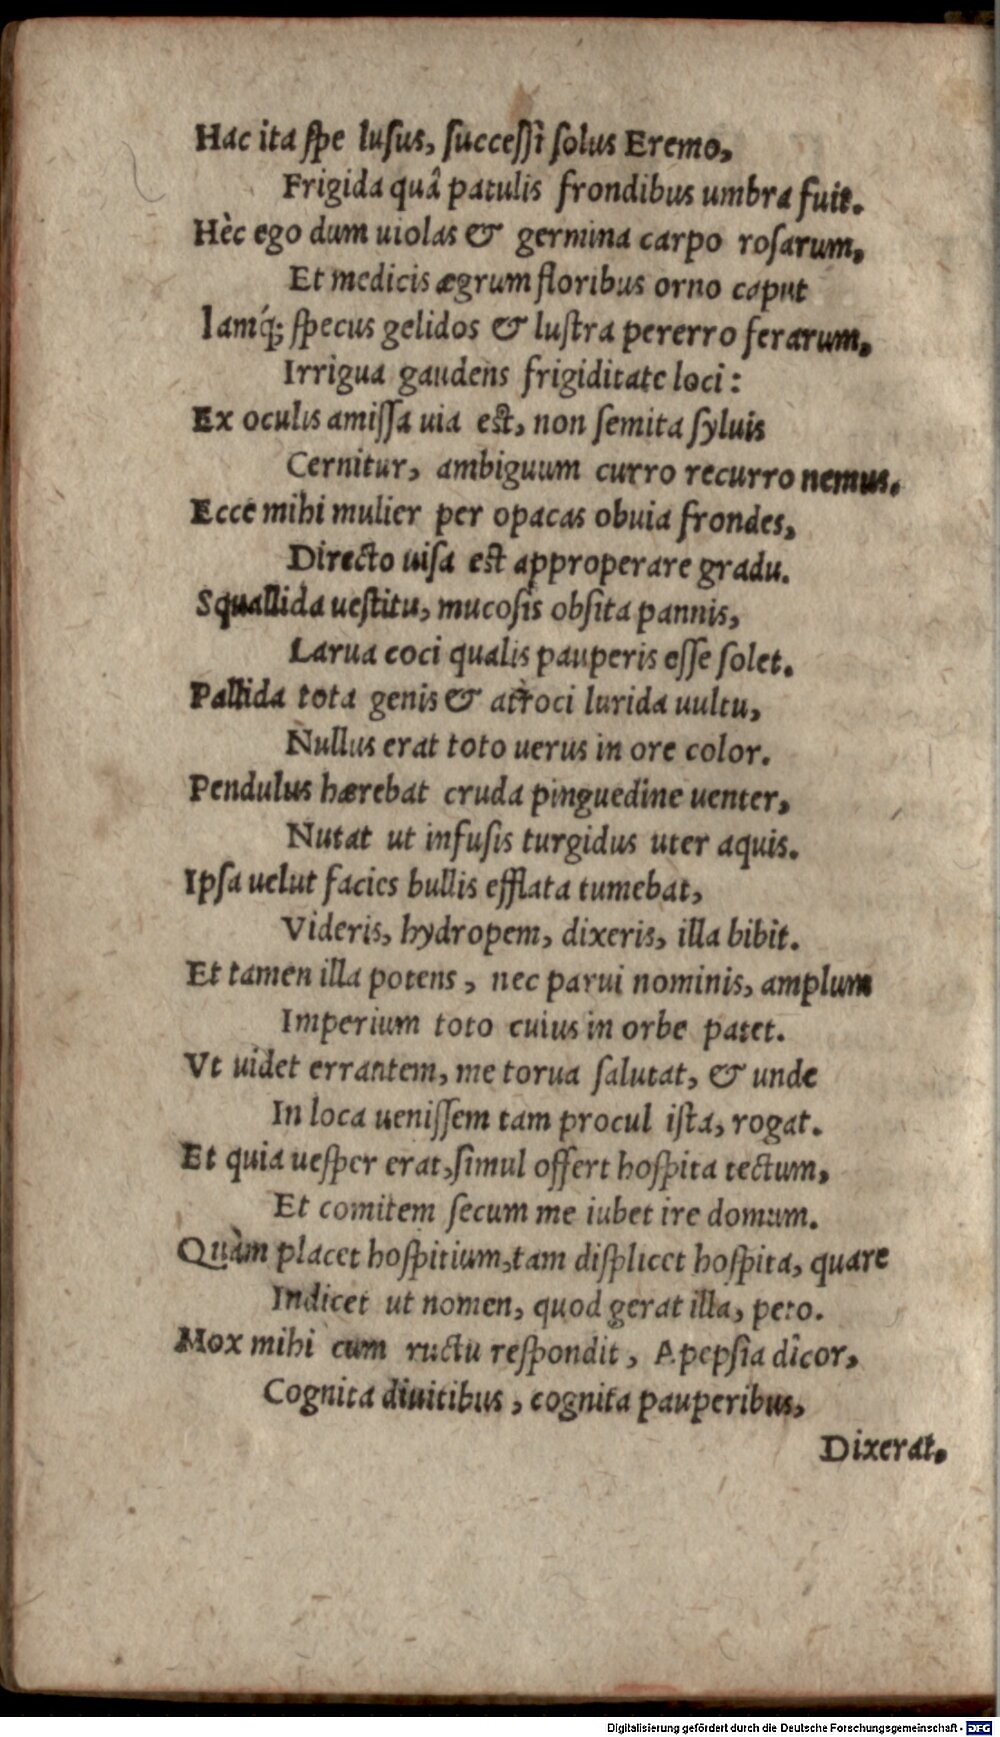 Hac ita spe lusus, successi solus Eremo,
Frigida quâ patulis frondibus umbra fuit.
Hèc ego dum uiolas & germina carpo rosarum,
Et medicis ægrum floribus orno caput
Iamq́; specus gelidos & lustra pererro ferarum,
Irrigua gaudens frigiditate loci:
Ex oculis amissa uia est, non semita syluis
Cernitur, ambiguum curro recurro nemus.
Ecce mihi mulier per opacas obuia frondes,
Directo uisa est approperare gradu.
Squallida uestitu, mucosis obsita pannis,
Larua coci qualis pauperis esse solet.
Pallida tota genis & atroci lurida uultu,
Nullus erat toto uerus in ore color.
Pendulus hærebat cruda pinguedine uenter,
Nutat ut infusis turgidus uter aquis.
Ipsa uelut facies bullis efflata tumebat,
Videris, hydropem, dixeris, illa bibit.
Et tamen illa potens, nec parui nominis, amplum
Imperium toto cuius in orbe patet.
Vt uidet errantem, me torua salutat, & unde
In loca uenissem tam procul ista, rogat.
Et quia uesper erat, simul offert hospita tectum,
Et comitem secum me iubet ire domum.
Quàm placet hospitium, tam displicet hospita, quare
Indicet ut nomen, quod gerat illa, peto.
Mox mihi cum ructu respondit, Apepsia dicor,
Cognita diuitibus, cognita pauperibus,
Dixerat.
Digitalisierung gefördert durch die Deutsche Forschungsgemeinschaft - DFG